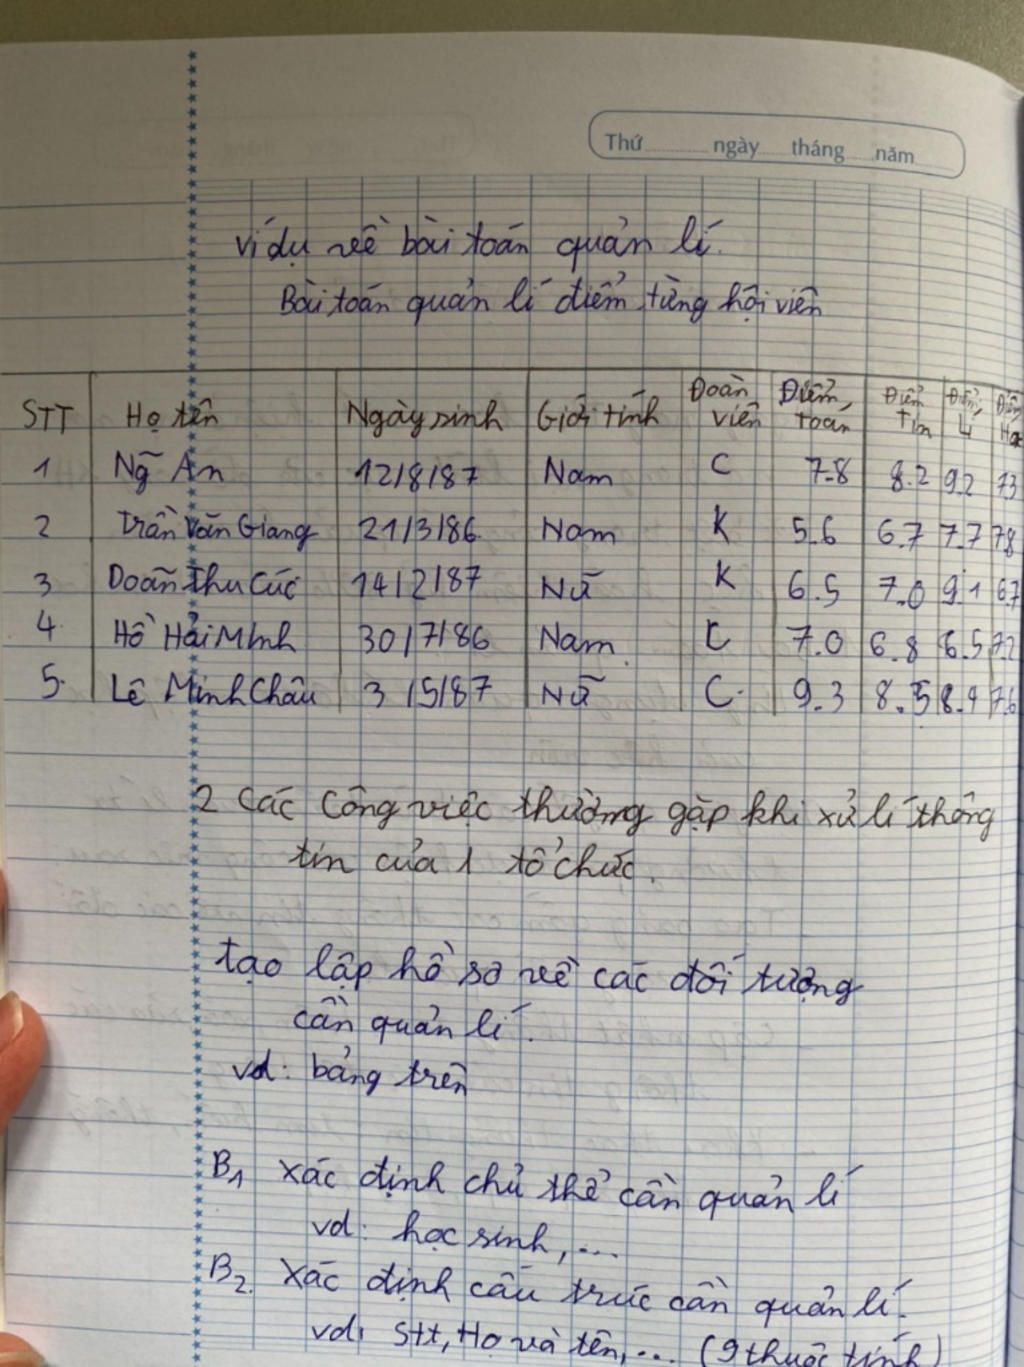 Thứ ngày tháng năm
ví dụ về bài toán quản lí.
Bài toán quản lí điểm từng hội viên
STT Họ tên Ngày sinh Giới tính Đoàn viên Điểm toán Điểm Tin Điểm Lí Điểm Hoá
1 Ng~ An 12/8/87 Nam C 7.8 8.2 9.2 7.3
2 Trần Văn Giang 21/3/86 Nam K 5.6 6.7 7.7 7.8
3 Doãn Thu Cúc 14/2/87 Nữ K 6.5 7.0 9.1 6.7
4 Hồ Hải Minh 30/7/86 Nam C 7.0 6.8 6.5 7.2
5. Lê Minh Châu 3/5/87 Nữ C 9.3 8.5 8.4 7.6
2 Các công việc thường gặp khi xử lí thông
tin của 1 tổ chức.
tạo lập hồ sơ về các đối tượng
cần quản lí.
vd: bảng trên
B1 Xác định chủ thể cần quản lí
vd: học sinh, ...
B2. Xác định cấu trúc cần quản lí.
vd: stt, Họ và tên, ... (9 thuộc tính)